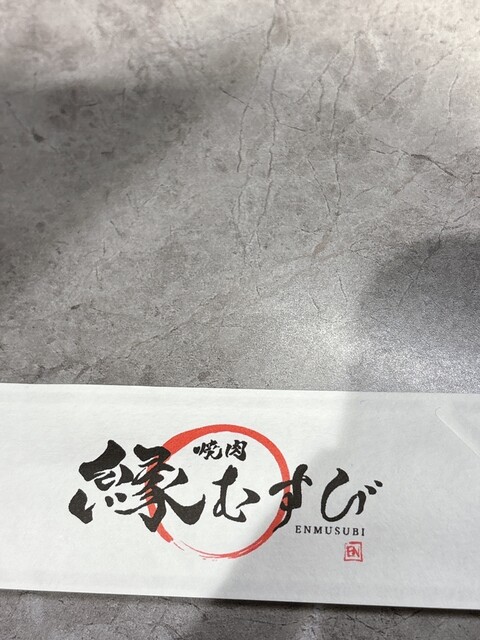 焼肉
縁むすび
ENMUSUBI
EN